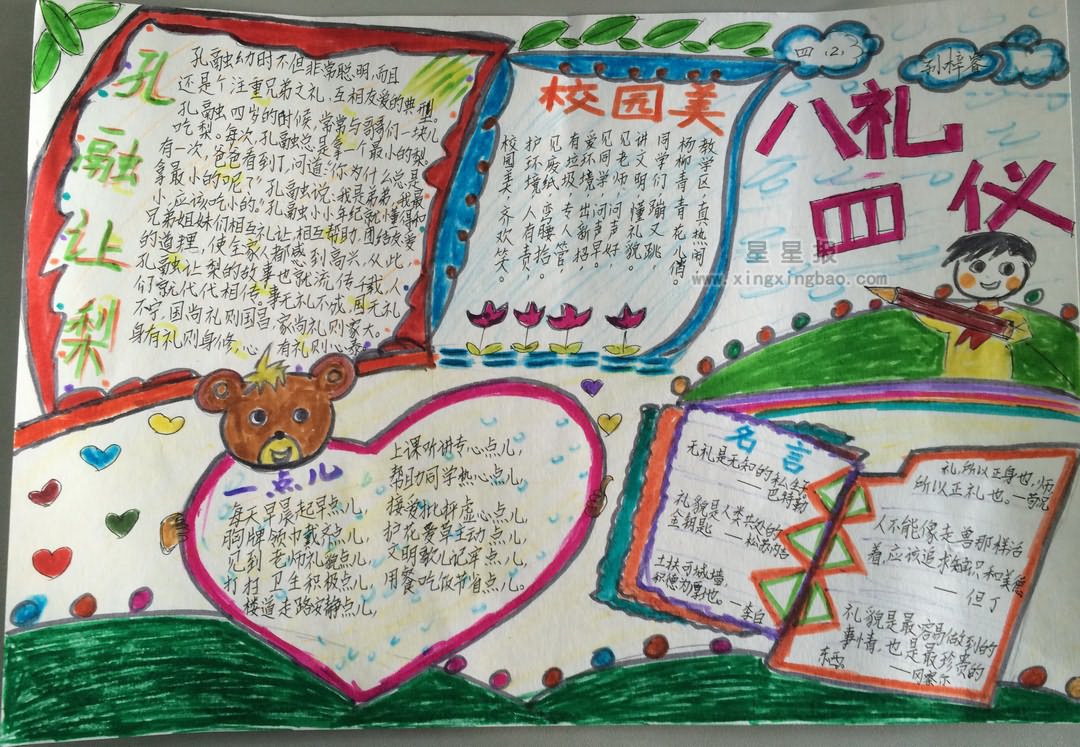 孔融让梨
孔融幼时不但非常聪明,而且
还是个注重兄弟之礼、互相友爱的典型。
孔融四岁的时候,常常与哥哥们一块儿
吃梨。每次,孔融总是拿一个最小的梨。
有一次,爸爸看到了,问道:“你为什么总是
拿最小的呢?”孔融说:“我是弟弟,我最
小,应该吃小的。”孔融小小年纪就懂得和
兄弟姐妹们相互礼让、相互帮助、团结友爱
的道理,使全家人都感到高兴,从此,
孔融让梨的故事也就流传千载,人
们就代代相传。事无礼不成,国无礼
不宁,国尚礼则国昌,家尚礼则家大。
身有礼则身修,心有礼则心泰。
校园美
教学区,真热闹
杨柳青青花儿俏。
同学们,又蹦又跳,
讲文明,懂礼貌。
见老师,问声好,
见同学,问声早。
爱环境,出新招,
有垃圾,专人管,
见废纸,弯腰拾,
护环境,人有责,
校园美,齐欢笑。
四(2)
孙梓睿
八礼
四仪
星星报
www.xingxingbao.com
一点儿
每天早晨起早点儿,
胸牌领巾戴齐点儿,
见到老师礼貌点儿,
打扫卫生积极点儿,
楼道走路安静点儿,
上课听讲专心点儿,
帮助同学热心点儿,
接受批评虚心点儿,
护花爱草主动点儿,
文明歌儿记牢点儿,
用餐吃饭节省点儿。
名言
无礼是无知的私生子。
——巴特勒
礼貌是人类共处的
金钥匙。——松苏内吉
土扶可城墙,
积德为厚地。—李白
礼,所以正身也,师,
所以正礼也。—荀况
人不能像走兽那样活
着,应该追求知识和美德
——但丁
礼貌是最容易做到的
事情,也是最珍贵的
东西。
——冈察尔